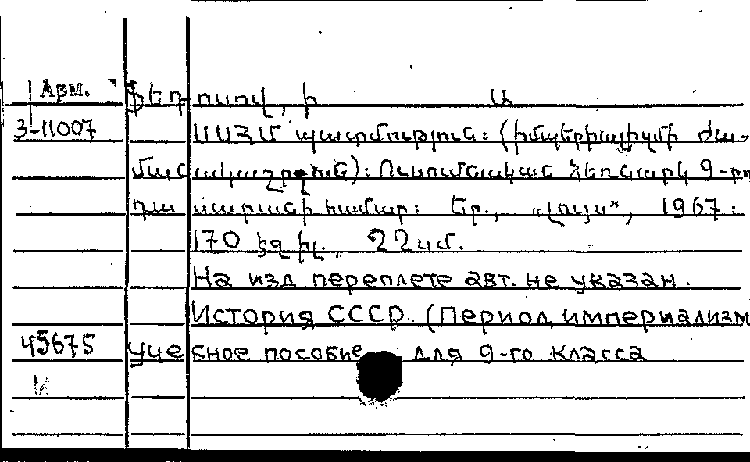 Арм. Ֆեդոսով, Ի Ա
3-11007 ՍՍՀՄ պատմություն: (Իմպերիալիզմի ժա-
մանակաշրջան): Ուսումնական ձեռնարկ 9-րդ
դասարանի համար: Եր., «Լույս", 1967:
170 էջ իլ. 22 սմ.
На изд переплете авт. не указан.
История СССР. (Период империализм
45675 учебное пособие для 9-го класса